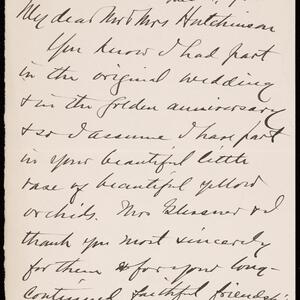 My dear Mr & Mrs Hutchinson
You know I had part
in the original wedding
& in the golden anniversary
& so I assume I have part
in your beautiful little
vase of beautiful yellow
orchids. Mrs Glessner & I
thank you most sincerely
for them & for your long-
continued faithful friendship